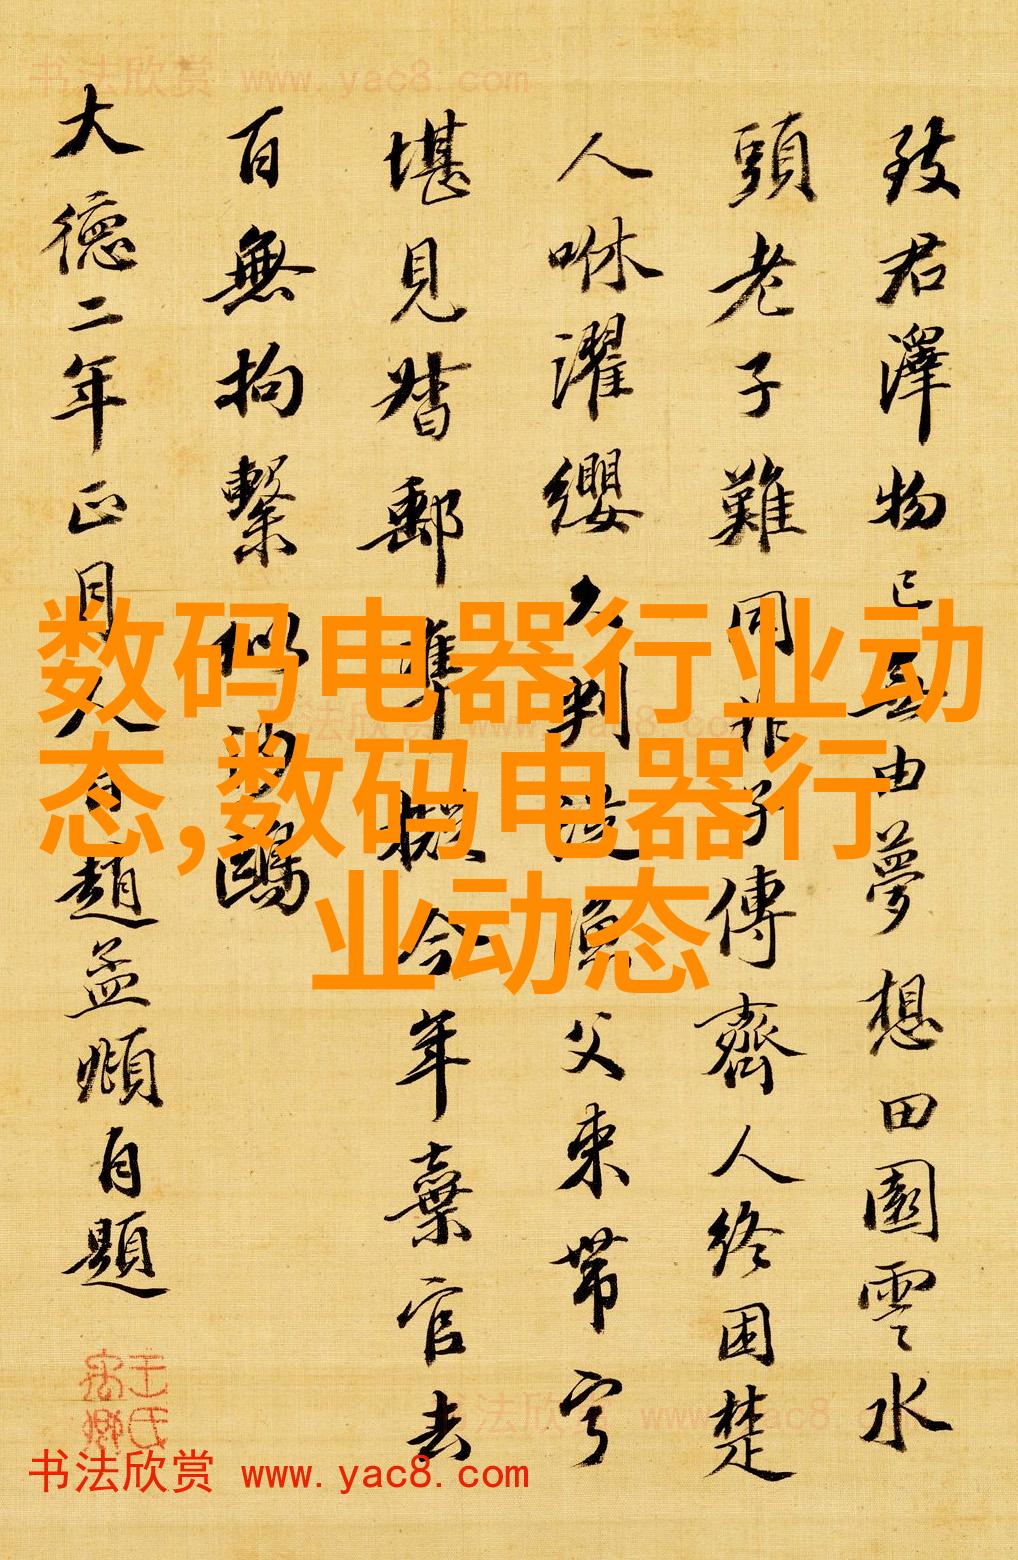 书法欣赏 www.yac8.com
致君澤物已無由夢想田園雲水
頭老子難同非子傳齊人終困楚
人咻濯纓久判從漁父束帶寧
堪見督郵準擬今年棄官去
百無拘繫似沙鷗
大德二年正月人日趙孟頫自題
数码电器行业动
态,数码电器行
业动态
书法欣赏 www.yac8.com
书法欣赏 www.yac8.com
书法欣赏 www.yac8.com